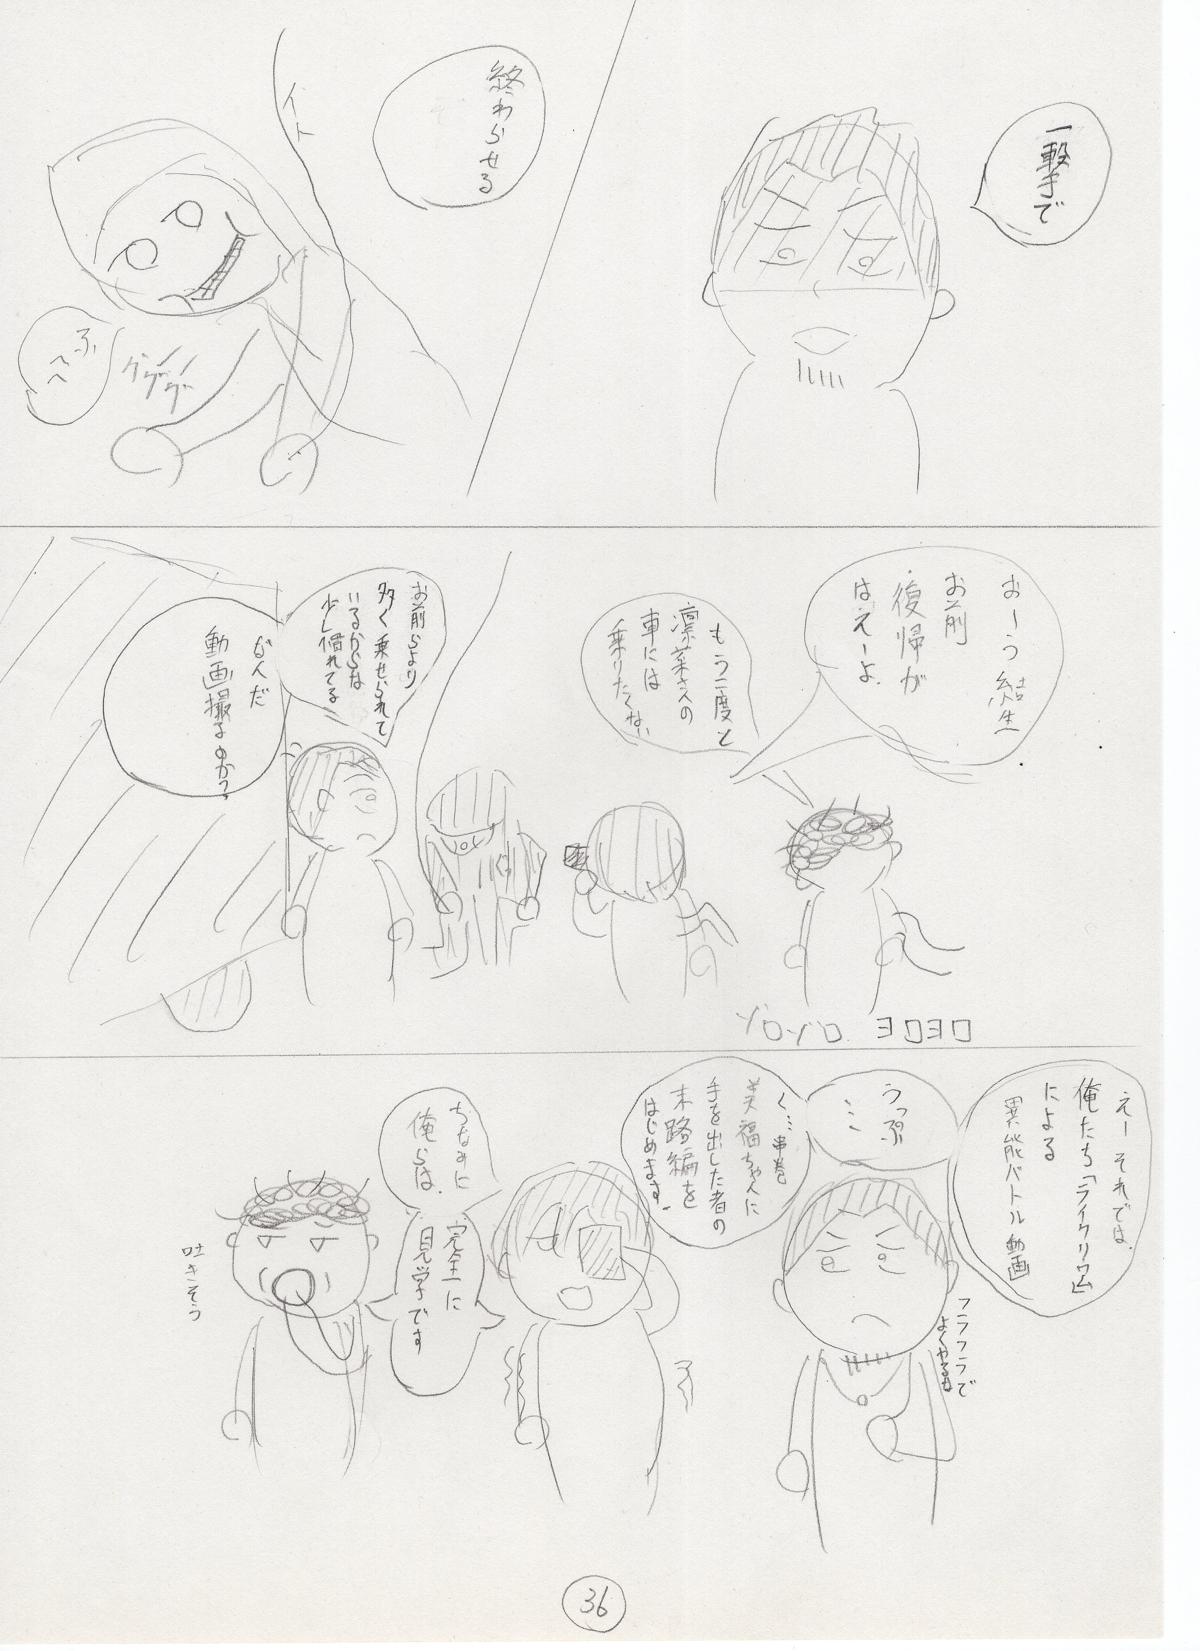 一撃で
終わらせる
イト
ググググ
ふ
へへ
おーう結生
お前
復帰が
はえーよ
もう二度と
凛菜さんの
車には
乗りたくない
お前らより
多く乗せられて
いるからな
少し慣れてる
なんだ
動画撮るのか?
えーそれでは、
俺たち「ライクリウム」
による
異能バトル動画
うっぷ
……
く…串巻
美福ちゃんに
手を出した者の
末路編を
はじめます。
フラフラで
よくやるわ
ちなみに
俺らは、
完全に
見学です
吐きそう
36